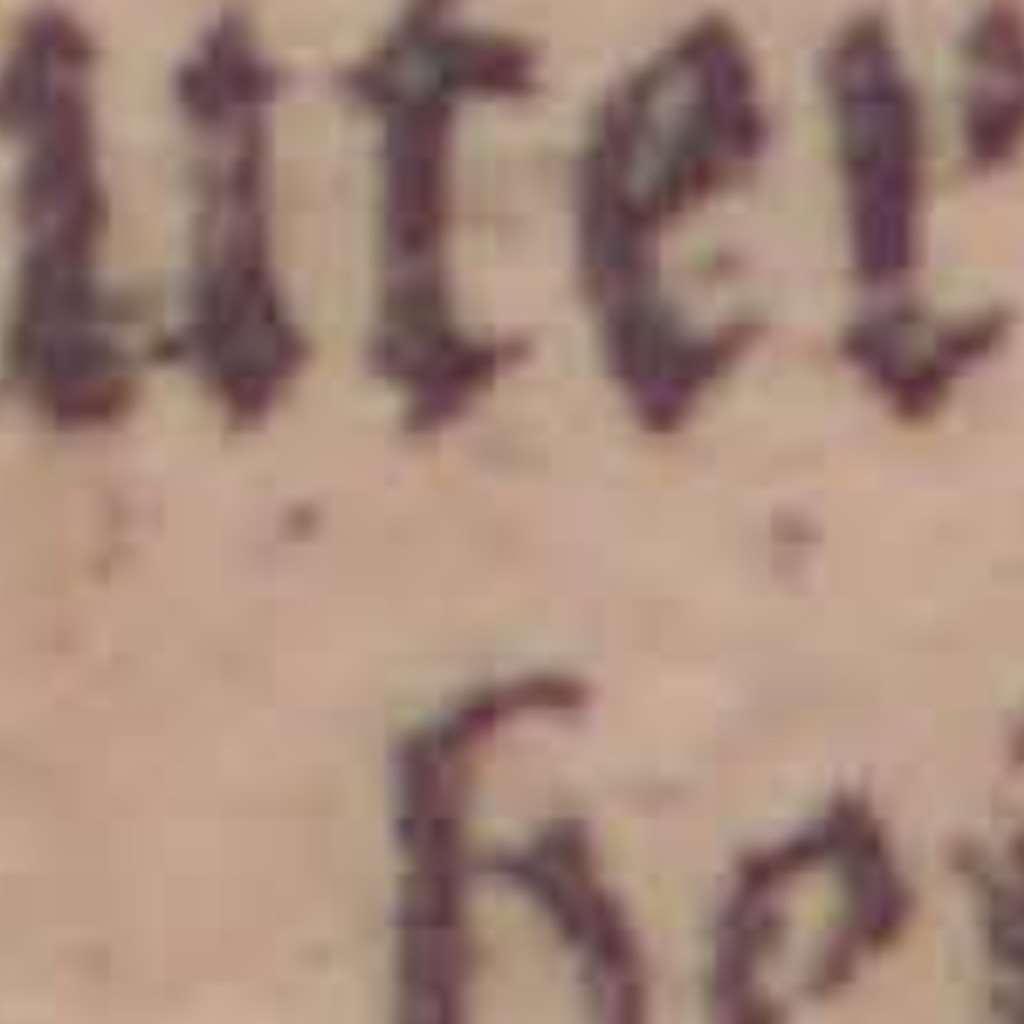 uter
he